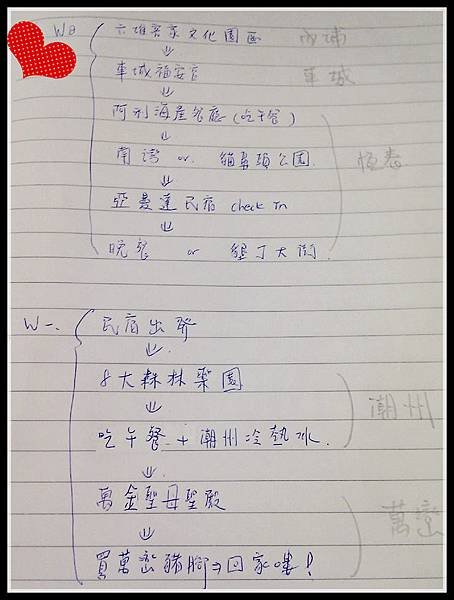 W日 六堆客家文化園區 內埔
↓
車城福安宮 車城
↓
阿利海產餐廳(吃午餐)
↓
南灣 or 貓鼻頭公園 恆春
↓
亞曼達民宿 check In
↓
晚餐 or 墾丁大街.
W一. 民宿出發
↓.
8大森林樂園
↓ 潮州
吃午餐 + 潮州冷熱冰.
↓.
萬金聖母聖殿
↓ 萬巒
買萬巒豬腳⇒回家嘍!